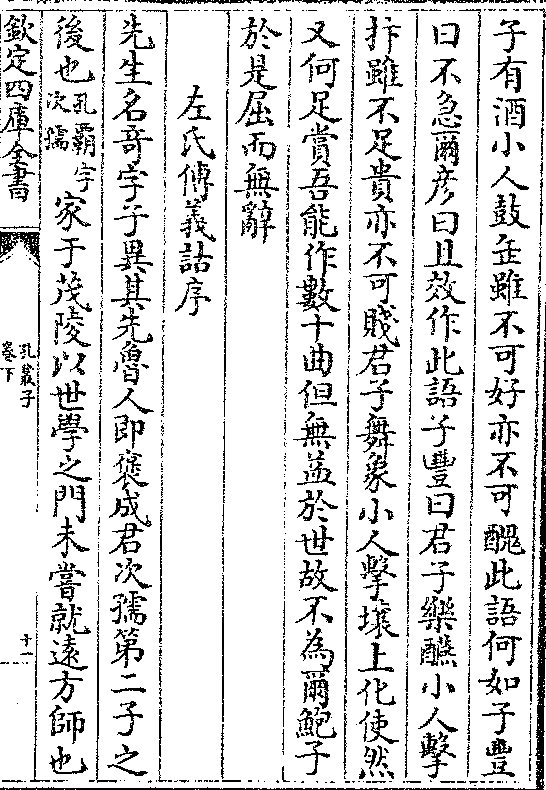 子有酒小人鼓缶雖不可好亦不可醜此語何如子豐
曰不急爾彦曰且效作此語子豐曰君子樂醼小人擊
抃雖不足貴亦不可賤君子舞象小人擊壤上化使然
又何足賞吾能作數十曲但無益於世故不為爾鮑子
於是屈而無辭
左氏傳義詁序
先生名竒字子異其先魯人即褒成君次孺第二子之
後也孔霸字次孺家于茂陵以世學之門未嘗就遠方師也
欽定四庫全書
孔叢子
卷下
十一